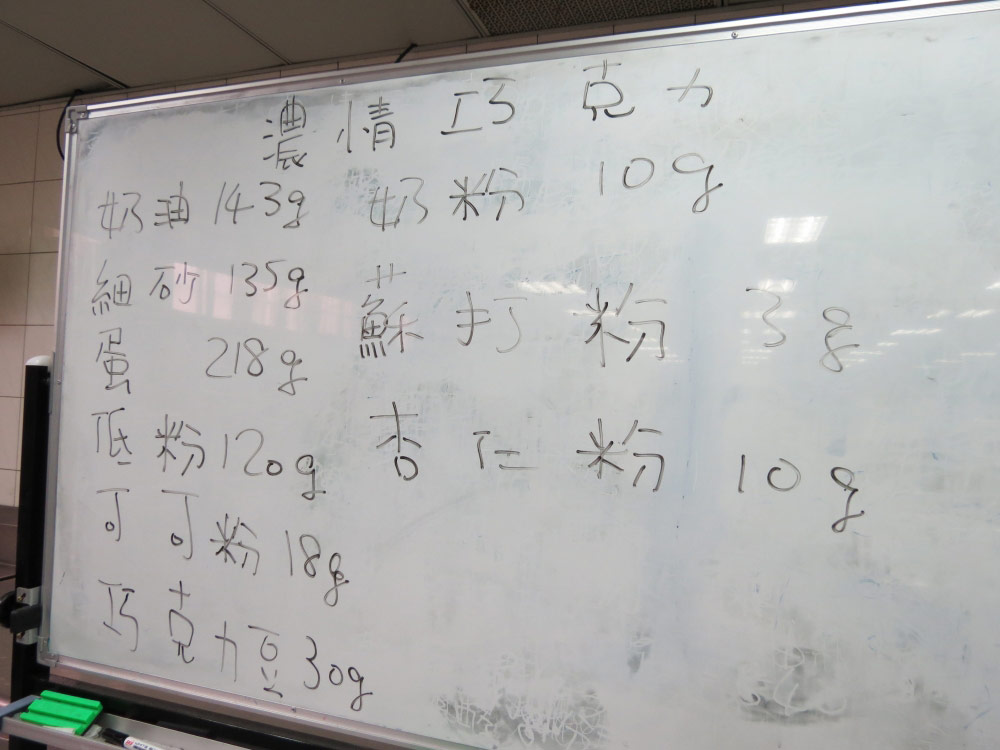 濃情巧克力
奶油 143g
細砂 135g
蛋 218g
低粉 120g
可可粉 18g
巧克力豆 30g
奶粉 10g
蘇打粉 3g
杏仁粉 10g